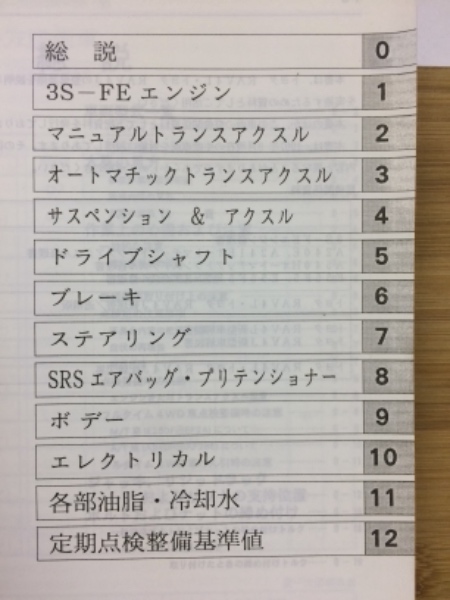 総 説 0
3S－FE エンジン 1
マニュアルトランスアクスル 2
オートマチックトランスアクスル 3
サスペンション & アクスル 4
ドライブシャフト 5
ブレーキ 6
ステアリング 7
SRSエアバッグ・プリテンショナー 8
ボデー 9
エレクトリカル 10
各部油脂・冷却水 11
定期点検整備基準値 12